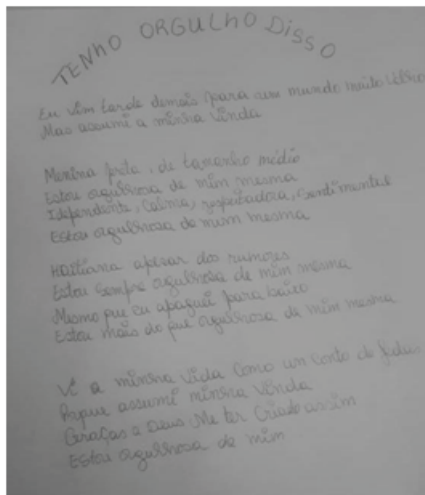 TENHO ORGULHO DISSO
Eu vim tarde demais para um mundo muito
Mas assumi a minha vinda
Menina preta, de tamanho médio
Estou orgulhosa de mim mesma
Idependente, Calma, respeitadora, sentimental
Estou orgulhosa de mim mesma
Haitiana apesar dos rumores
Estou sempre orgulhosa de mim mesma
Mesmo que eu apaguei para
Estou mais do que orgulhosa de mim mesma
Vi a minha vida como un conto de fadas
assumi minha vinda
Graças a Deus me ter criado assim
Estou orgulhosa de mim